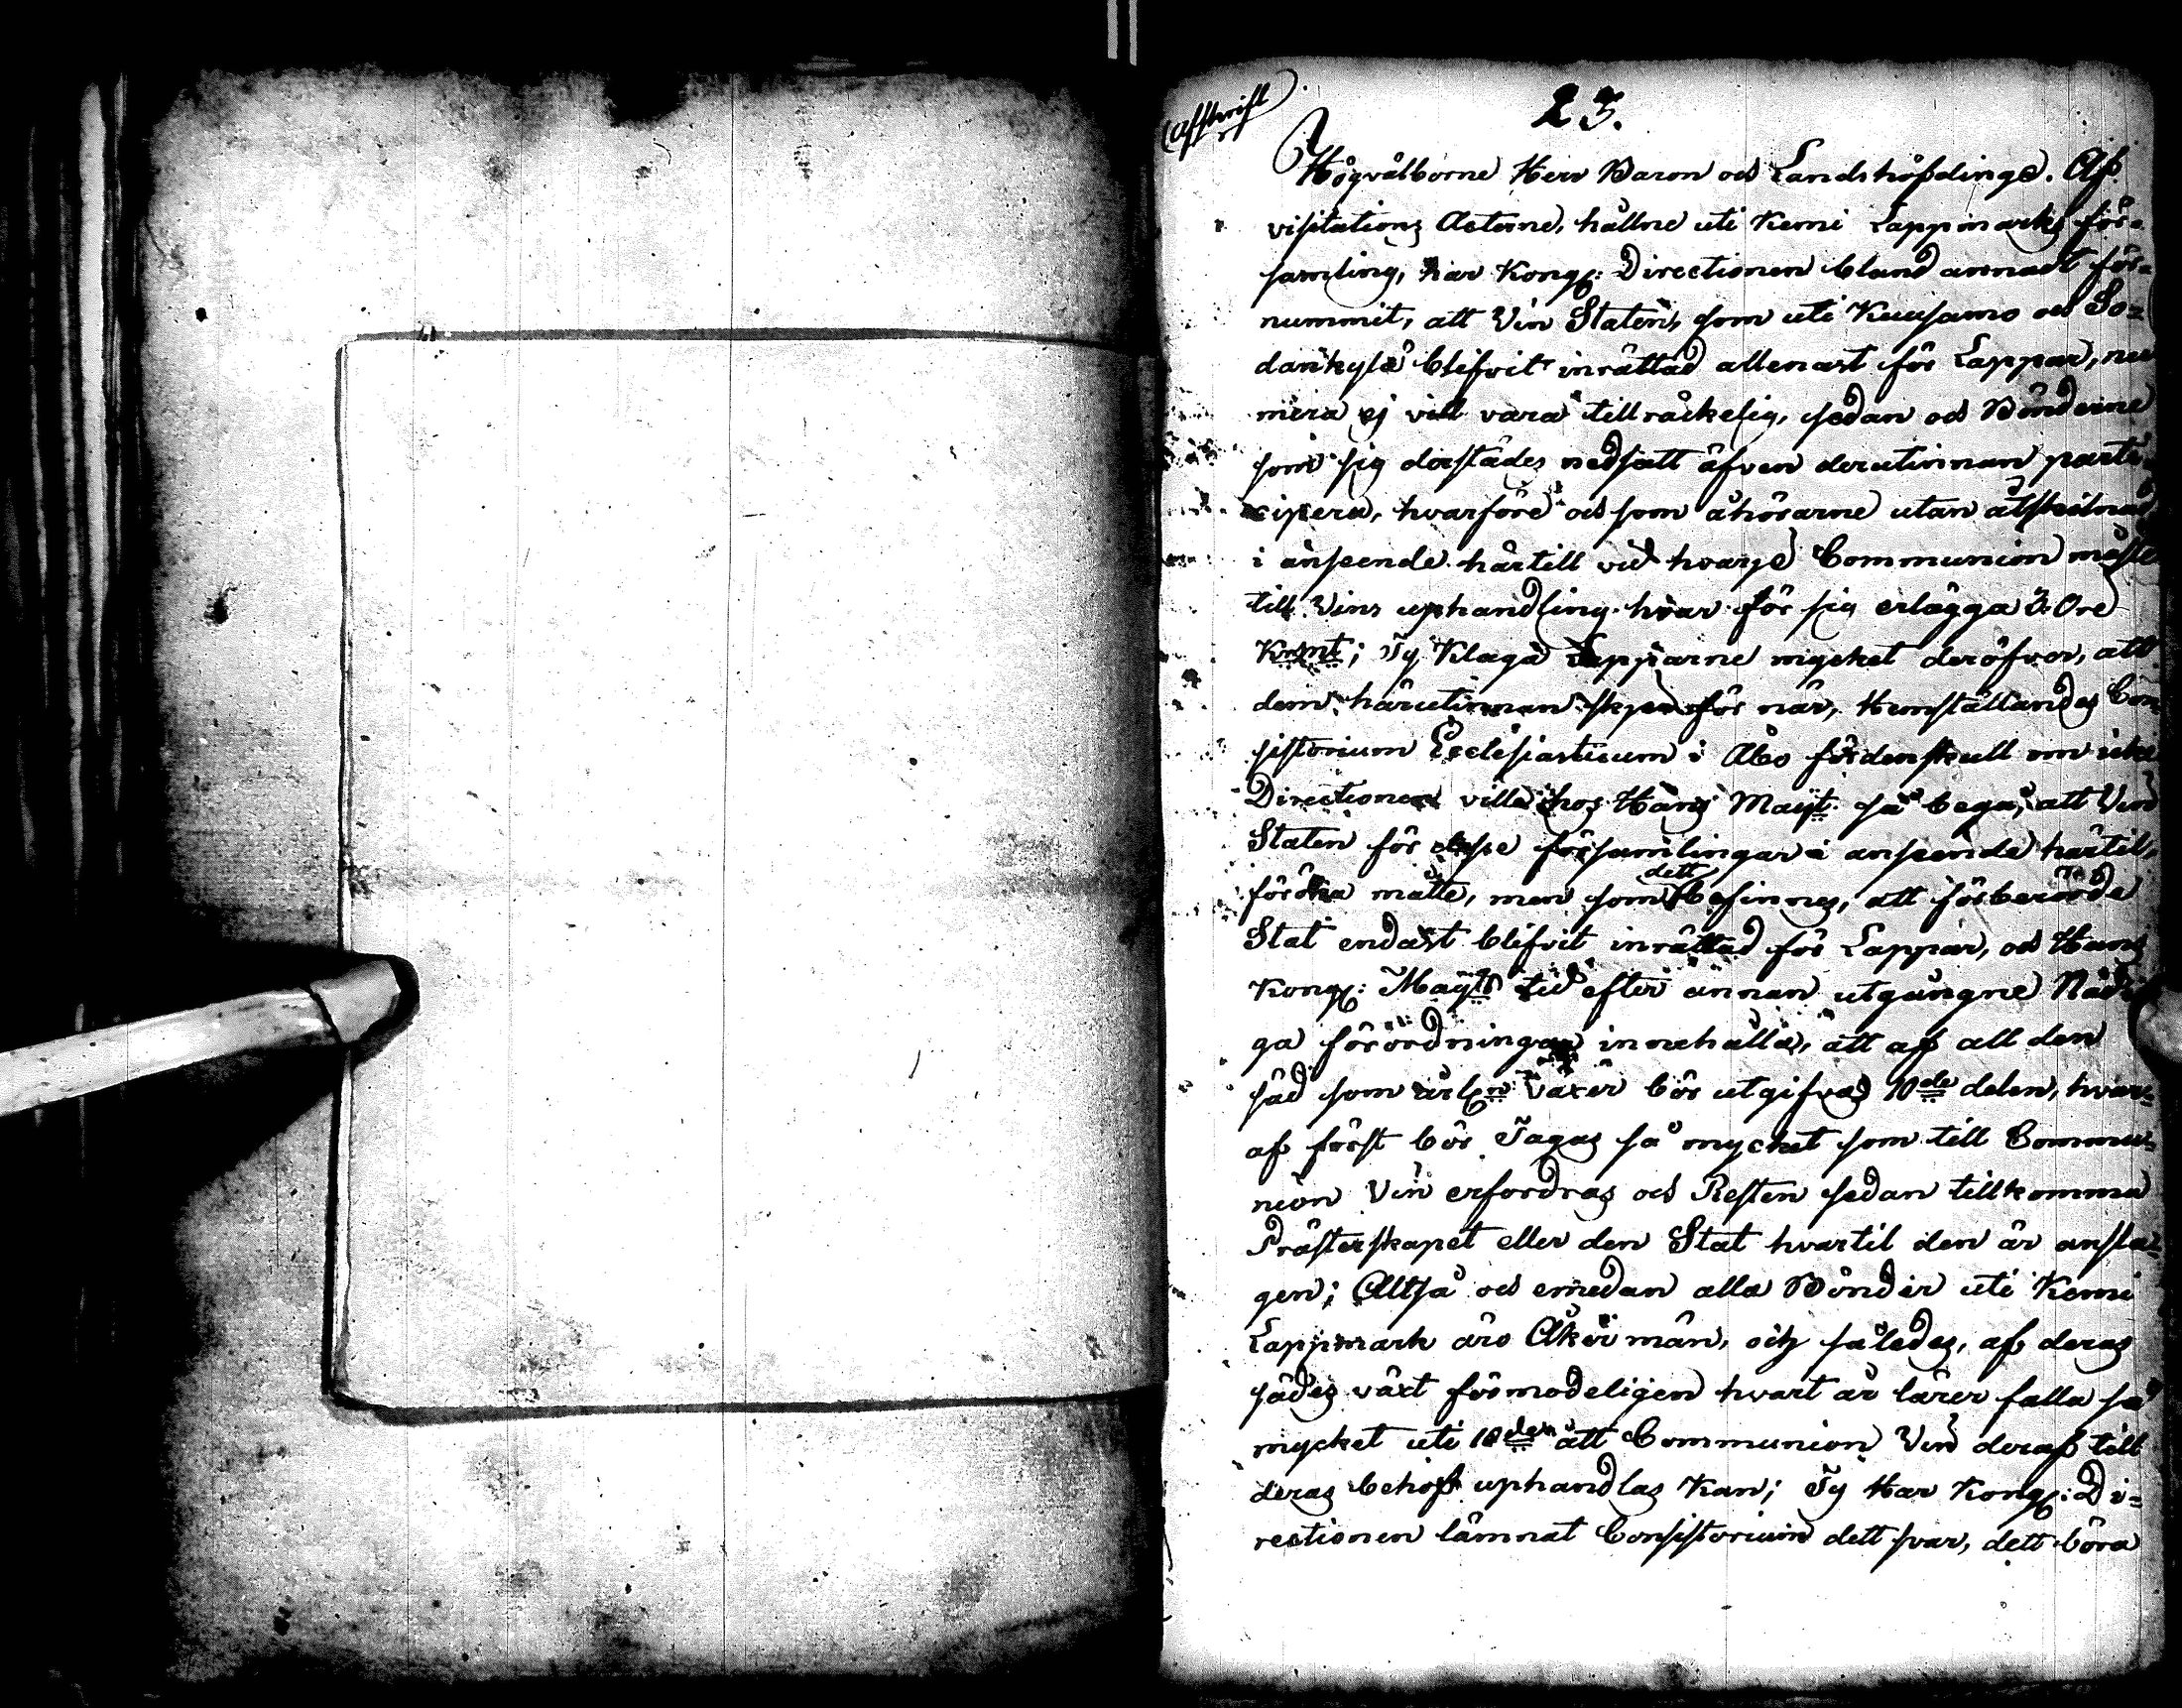 Afskrift
23.
Högvälborne Herr Baron och Landshöfdinge. Af
visitations Acterne, hållne uti Kemi Lappmarks för-
samling, har Kongl: Directionen bland annat för-
nummit, att Vin Staten, som uti Kuusamo och So-
dankylä blifvit inrättad allenast för Lappar, nu
mera ej vill vara tillräckelig, sedan och Bönderne
som sig derstädes nedsatt äfven derutinnan parti-
cipera, hvarföre och som åhörarne utan åtskilnad
i anseende härtill vid hvarje Communion måste
till Vins uphandling hvar för sig erlägga 3 Öre
Kmnt; Ty Klaga Lapparne mycket deröfver, att
dem härutinnan sker för när, Hemställandes Con
sistorium Ecclesiasticum i Åbo fördenskull om icke
Directionen ville hos Hans Maijt: så begå, att Vin
Staten för desse församlingar i anseende härtil,
föröka måtte, men som dett befinnes, att förberörde
Stat endast blifvit inrättad för Lappar, och Hans
Kongl: Maijts tid efter annan utgångne Nådi
ga förordningar innehålla, att af all den
säd som årln växer bör utgifvas 10de delen, hvar-
af först bör Tagas så mycket som till Commu-
nion Vin erfordras och Resten sedan tillkomma
Prästerskapet eller den Stat hvartil den är ansla-
gen; Alltså och emedan alla Bönder uti Kemi
Lappmark äro Åker män, och således, af deras
sädes växt förmodeligen hvart år lärer falla så
mycket uti 10den att Communion Vin deraf till
deras behof uphandlas kan; Ty Har Kongl: Di-
rectionen lämnat Consistorium dett svar, dett böra